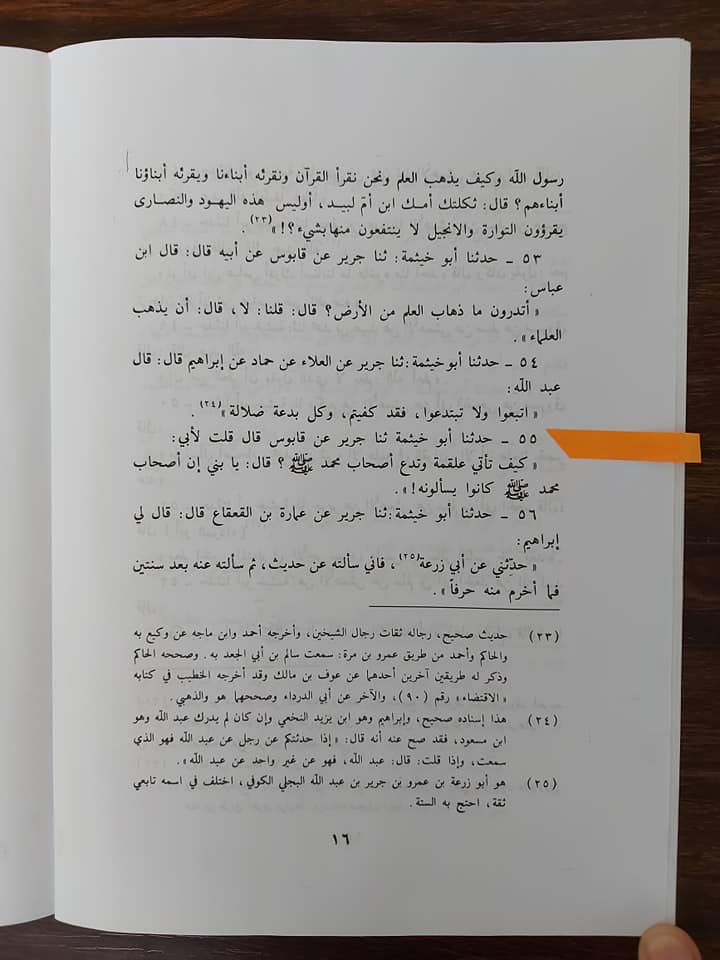 رسول الله وكيف يذهب العلم ونحن نقرأ القرآن ونقرئه أبناءنا ويقرئه أبناؤنا
أبناءهم؟ قال: ثكلتك أمك ابن أمّ لبيد، أوليس هذه اليهود والنصارى
يقرؤون التوارة والانجيل لا ينتفعون منها بشيء؟!» (٢٣) .
٥٣ ـ حدثنا أبو خيثمة: ثنا جرير عن قابوس عن أبيه قال: قال ابن
عباس:
« أتدرون ما ذهاب العلم من الأرض؟ قال: قلنا: لا، قال: أن يذهب
العلماء » .
٥٤ ـ حدثنا أبو خيثمة: ثنا جرير عن العلاء عن حماد عن إبراهيم قال: قال
عبد الله:
« اتبعوا ولا تبتدعوا، فقد كفيتم، وكل بدعة ضلالة » (٢٤) .
٥٥ ـ حدثنا أبو خيثمة ثنا جرير عن قابوس قال قلت لأبي:
« كيف تأتي علقمة وتدع أصحاب محمد ﷺ ؟ قال: يا بني إن أصحاب
محمد ﷺ كانوا يسألونه! » .
٥٦ ـ حدثنا أبو خيثمة: ثنا جرير عن عمارة بن القعقاع قال: قال لي
إبراهيم:
« حدِّثني عن أبي زرعة (٢٥)، فاني سألته عن حديث، ثم سألته عنه بعد سنتين
فما أخرم منه حرفاً » .
(٢٣) حديث صحيح، رجاله ثقات رجال الشيخين، وأخرجه أحمد وابن ماجه عن وكيع به
والحاكم وأحمد من طريق عمرو بن مرة: سمعت سالم بن أبي الجعد به . وصححه الحاكم
وذكر له طريقين آخرين أحدهما عن عوف بن مالك وقد أخرجه الخطيب في كتابه
« الاقتضاء » رقم (٩٠)، والآخر عن أبي الدرداء وصححهما هو والذهبي .
(٢٤) هذا إسناده صحيح، وإبراهيم وهو ابن يزيد النخعي وإن كان لم يدرك عبد الله وهو
ابن مسعود، فقد صح عنه أنه قال: « إذا حدثتكم عن رجل عن عبد الله فهو الذي
سمعت، وإذا قلت: قال: عبد الله، فهو عن غير واحد عن عبد الله » .
(٢٥) هو أبو زرعة بن عمرو بن جرير بن عبد الله البجلي الكوفي، اختلف في اسمه تابعي
ثقة، احتج به الستة .
١٦